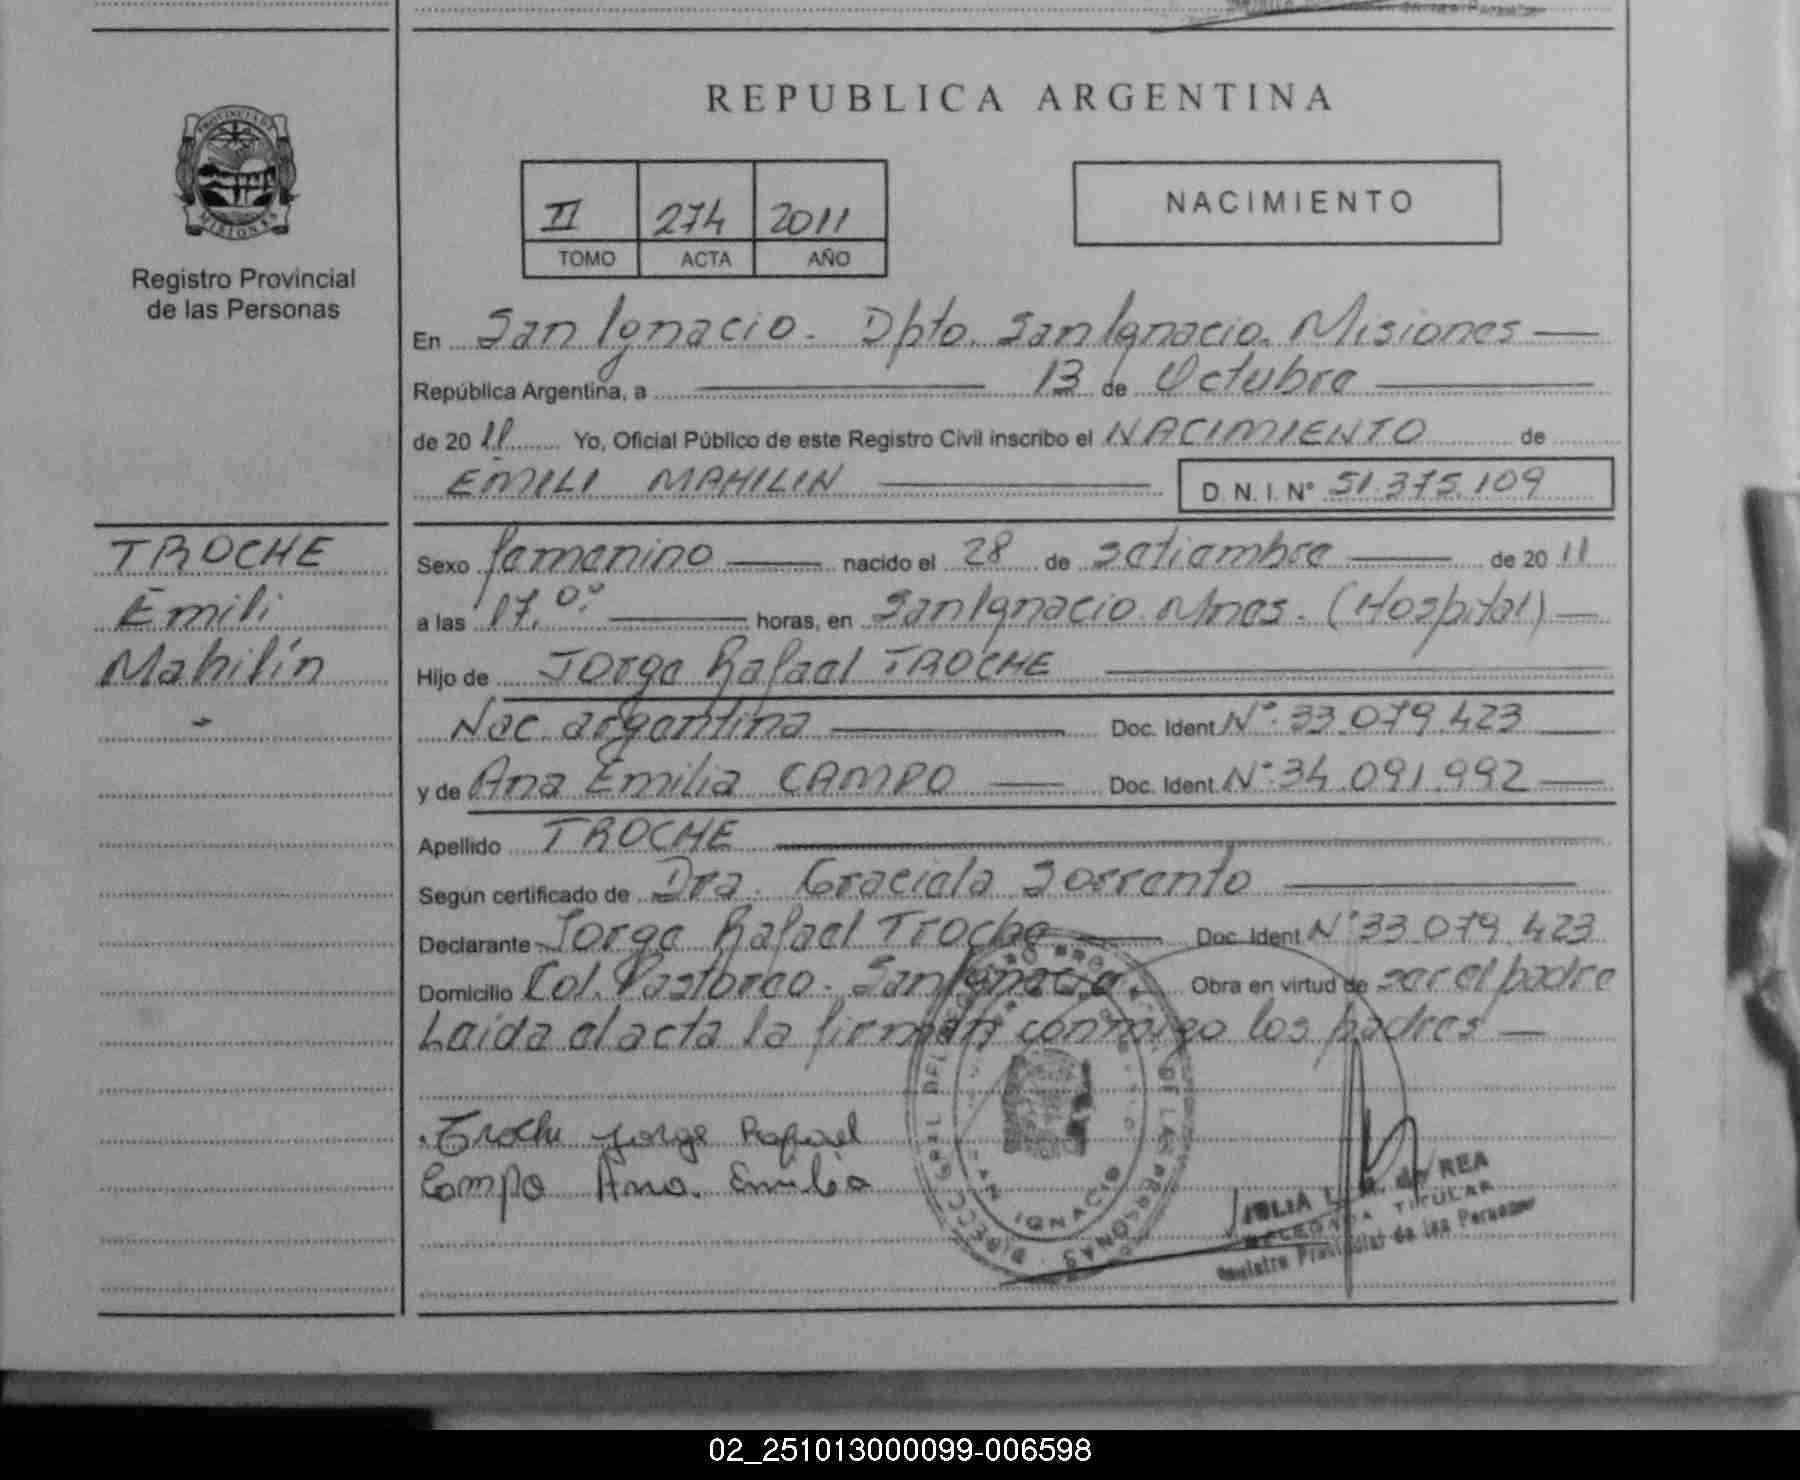 REPUBLICA ARGENTINA
PROVINCIA DE
MISIONES
Registro Provincial
de las Personas
II 274 2011
TOMO ACTA AÑO
NACIMIENTO
En San Ignacio. Dpto. San Ignacio. Misiones
República Argentina, a 13 de Octubre
de 2011 Yo, Oficial Público de este Registro Civil inscribo el NACIMIENTO de
EMILI MAHILIN D.N.I. N° 51.375.109
TROCHE
Emili
Mahilín
Sexo femenino nacido el 28 de setiembre de 2011
a las 17.00 horas, en San Ignacio. Mnes. (Hospital)
Hijo de Jorge Rafael TROCHE
Nac. argentina Doc. Ident N° 33.079.423
y de Ana Emilia CAMPO Doc. Ident N° 34.091.992
Apellido TROCHE
Según certificado de Dra. Graciela Sorrento
Declarante Jorge Rafael Troche Doc. Ident N° 33.079.423
Domicilio Col. Pastoreo - San Ignacio. Obra en virtud de ser el padre
Leida el acta la firman conmigo los padres
Troche Jorge Rafael
Campo Ana Emilia
SAN IGNACIO
DE LAS PERSONAS
JULIA L. R. de REA
DELEGADA TITULAR
Registro Provincial de las Personas
02_251013000099-006598